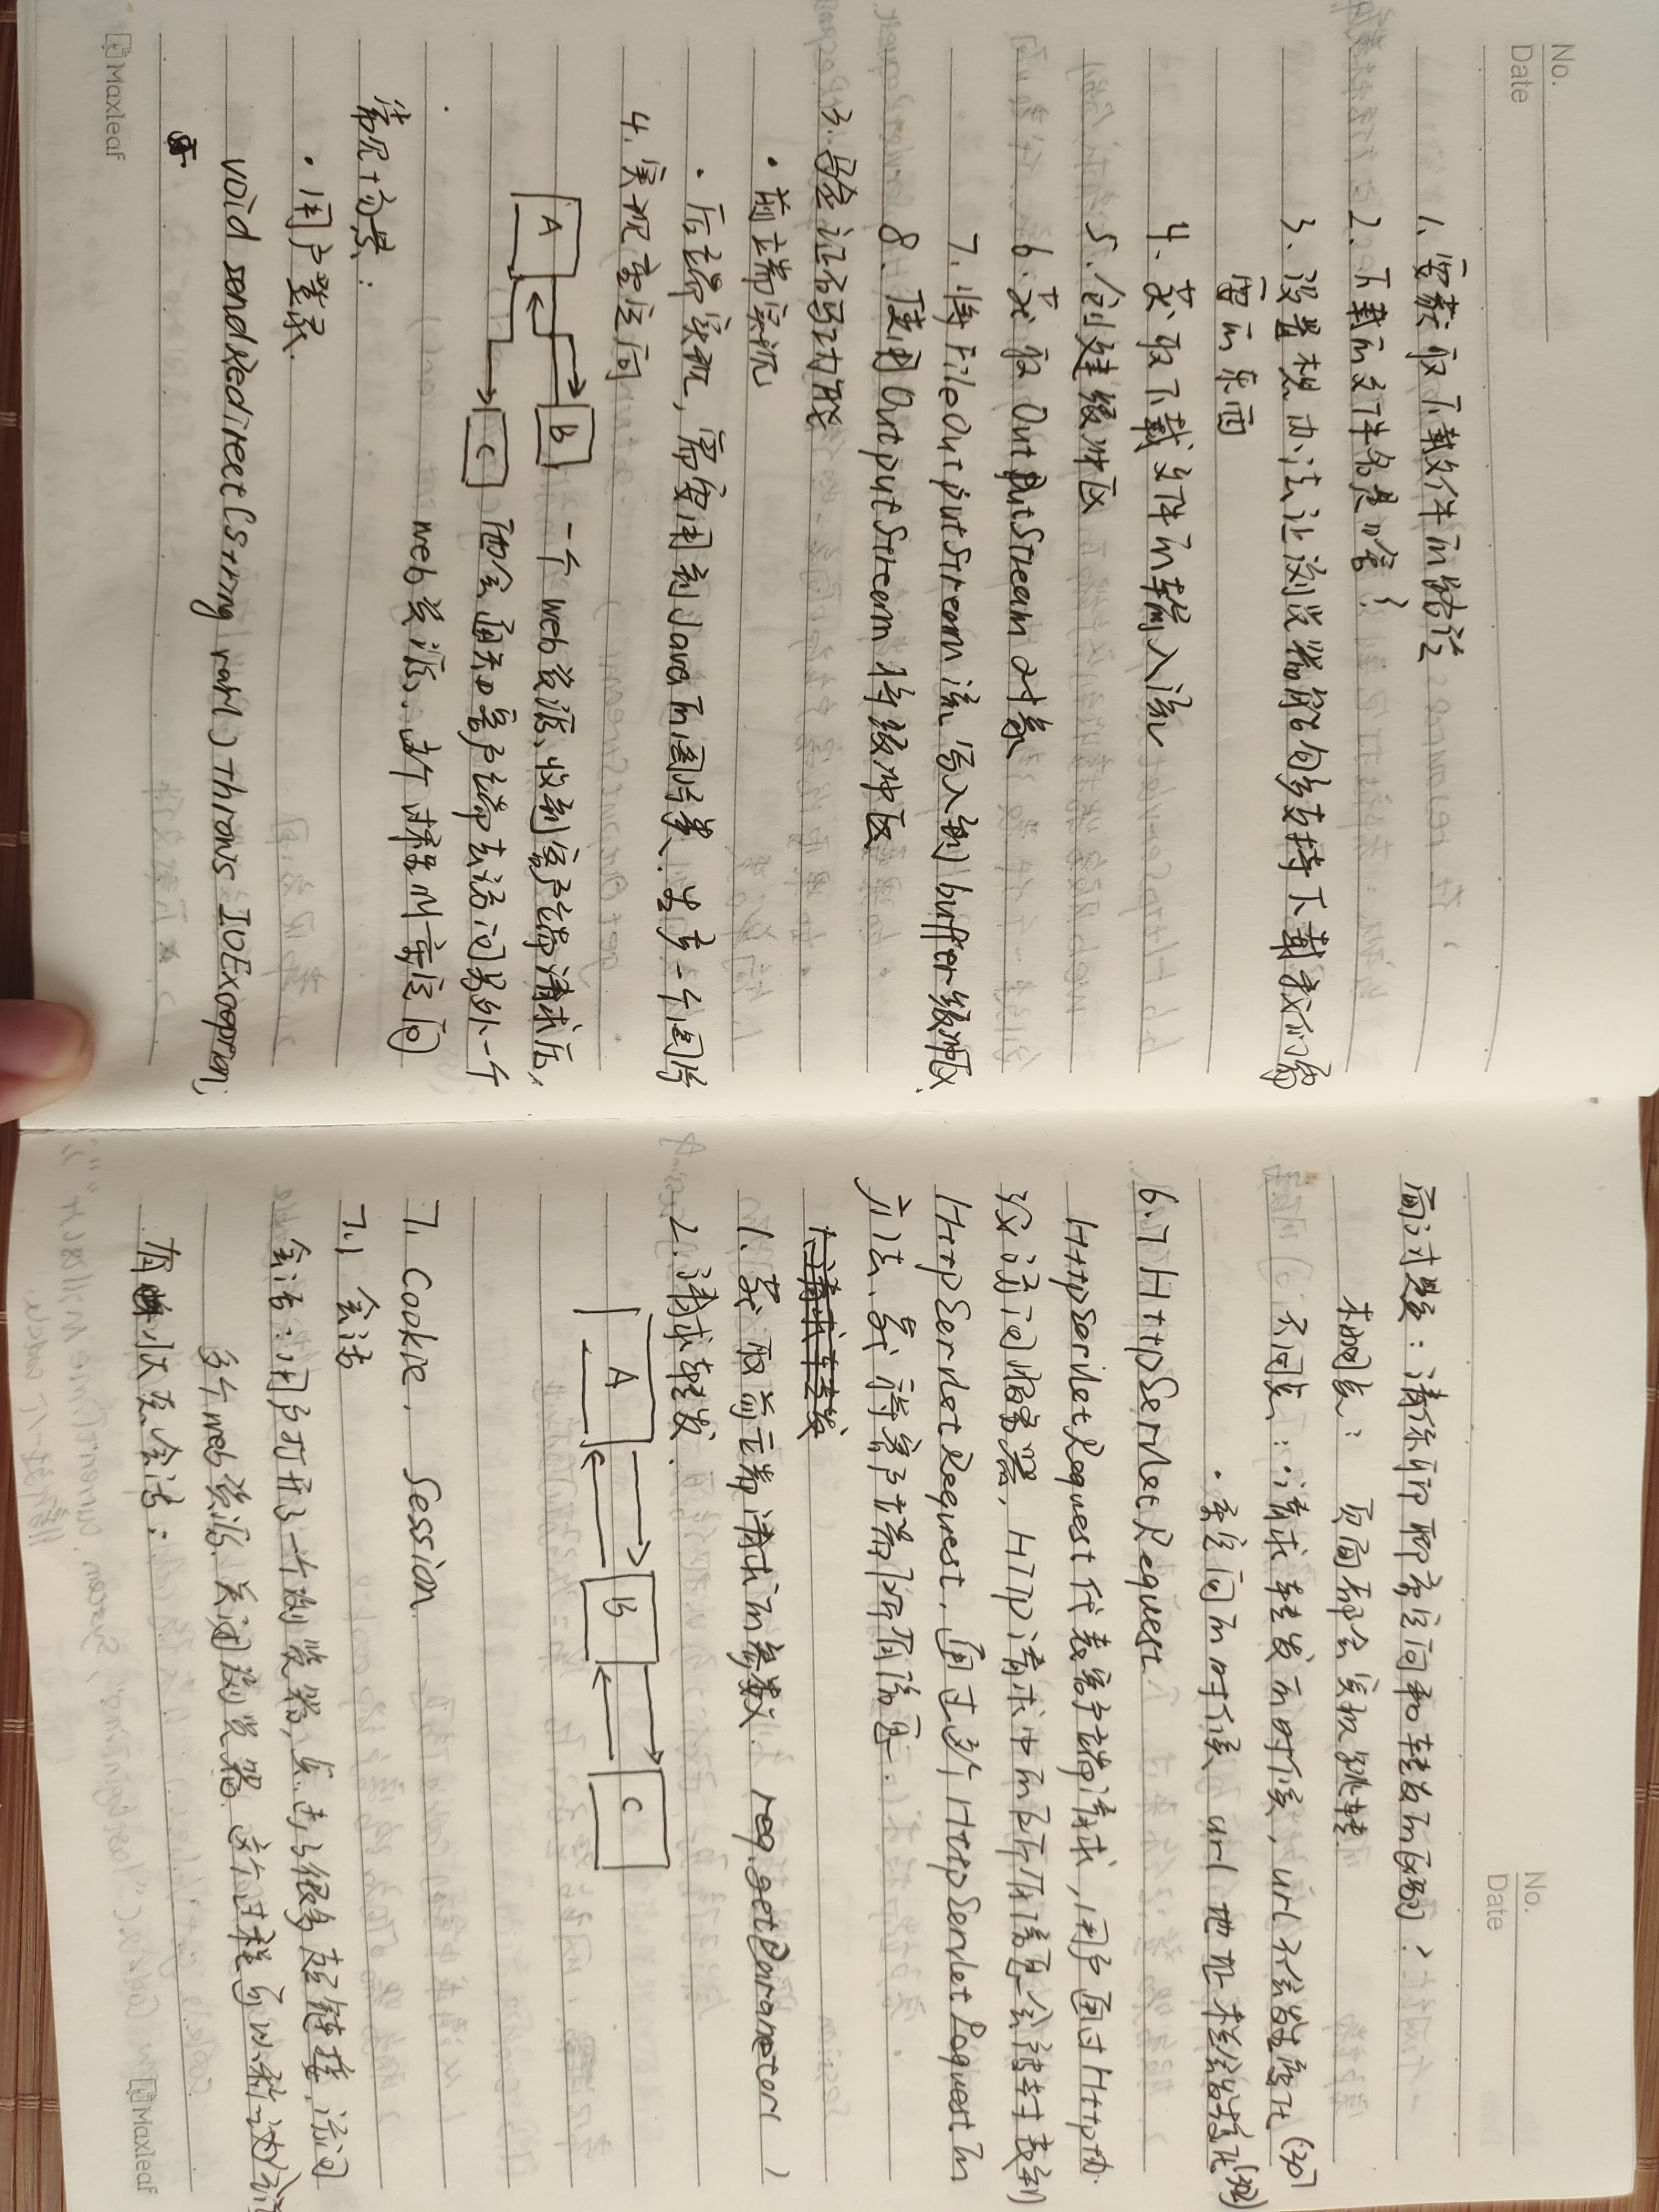 No.
Date
1. 要获取下载文件的路径
2. 下载的文件名是啥?
3. 设置想办法让浏览器能够支持下载我们需
要的东西
4. 获取下载文件的输入流
5. 创建缓冲区
6. 获取OutputStream对象
7. 将FileOutputStream流写入到buffer缓冲区
8. 使用OutputStream将缓冲区
3. 验证码功能
· 前端实现
· 后端实现,需要用到Java的图片类,生产一个图片
4. 实现重定向
A
B
C
一个web资源收到客户端请求后,
他会通知客户端去访问另外一个
web资源,这个过程叫重定向
常见场景:
· 用户登录.
void sendRedireet(Srring var1) throws IOException;
Maxleaf
No.
Date
面试题:请你聊聊重定向和转发的区别?
相同点: 页面都会实现跳转
不同点:·请求转发的时候,url不会发生变化(307
·重定向的时候url地址栏会发生变化(302)
6.7 HttpServletRequest
HttpServletRequest代表客户端请求,用户通过Http协
议访问服务器,HTTP请求中的所有信息会被封装到
HttpServletRequest,通过这个HttpServletRequest的
方法,获得客户端所有信息.
1.请求转发
1. 获取前端请求的参数. req.getParameter( )
2. 请求转发.
A
B
C
7. Cookie, Session
7.1 会话
会话:用户打开了一个浏览器,点击了很多超链接,访问
多个web资源,关闭浏览器.这个过程可以称之为会话
有状态会话:
Maxleaf